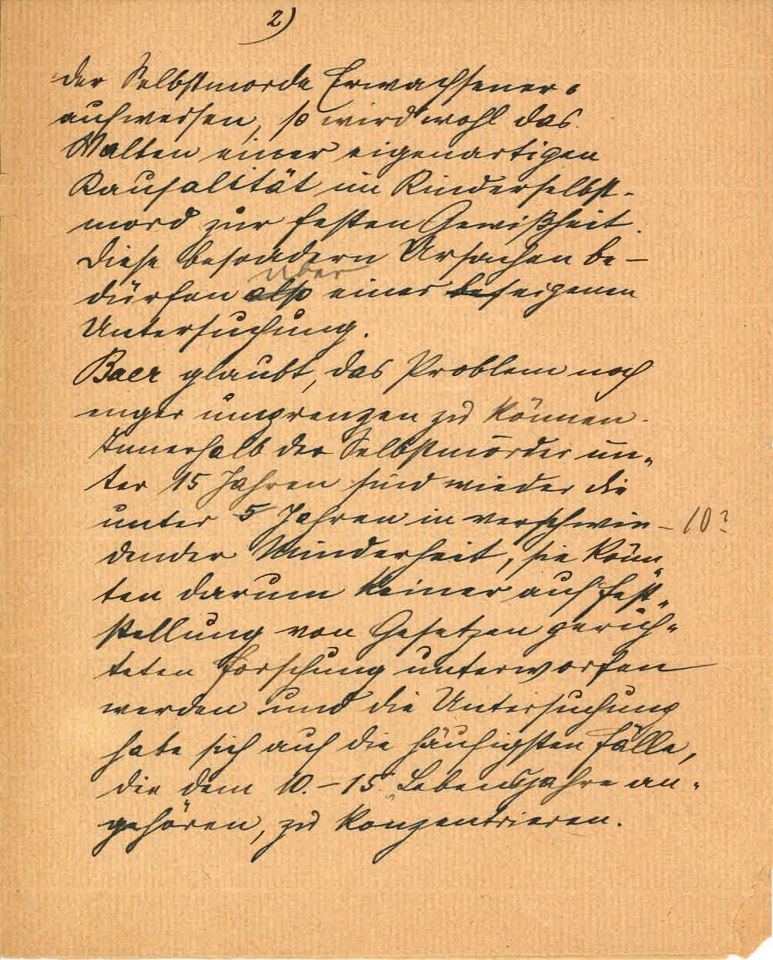 2)
der Selbstmorde Erwachsener
aufweisen, so wird wohl das
Walten einer eigenartigen
Kausalität im Kinderselbst-
mord zur festen Gewißheit.
Diese besondern Ursachen be-
über
dürfen also einer eigenen
Untersuchung.
Baer glaubt, das Problem noch
enger umgrenzen zu können.
Innerhalb der Selbstmörder un-
ter 15 Jahren sind wieder die
unter 5 Jahren in verschwin- 10?
dender Minderheit, sie könn-
ten darum keiner auf Fest-
stellung von Gesetzen gerich-
teten Forschung unterworfen
werden und die Untersuchung
habe sich auf die häufigsten Fälle,
die dem 10.-15. Lebensjahre an-
gehören, zu konzentrieren.